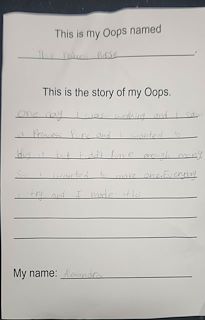 This is my Oops named
The Princess Purse
This is the story of my Oops.
One day I was walking and I saw
a Princess Purse and I wanted to
buy it but I didn't have enough money
So I wanted to make one. Everyday
I try and I made it
My name: